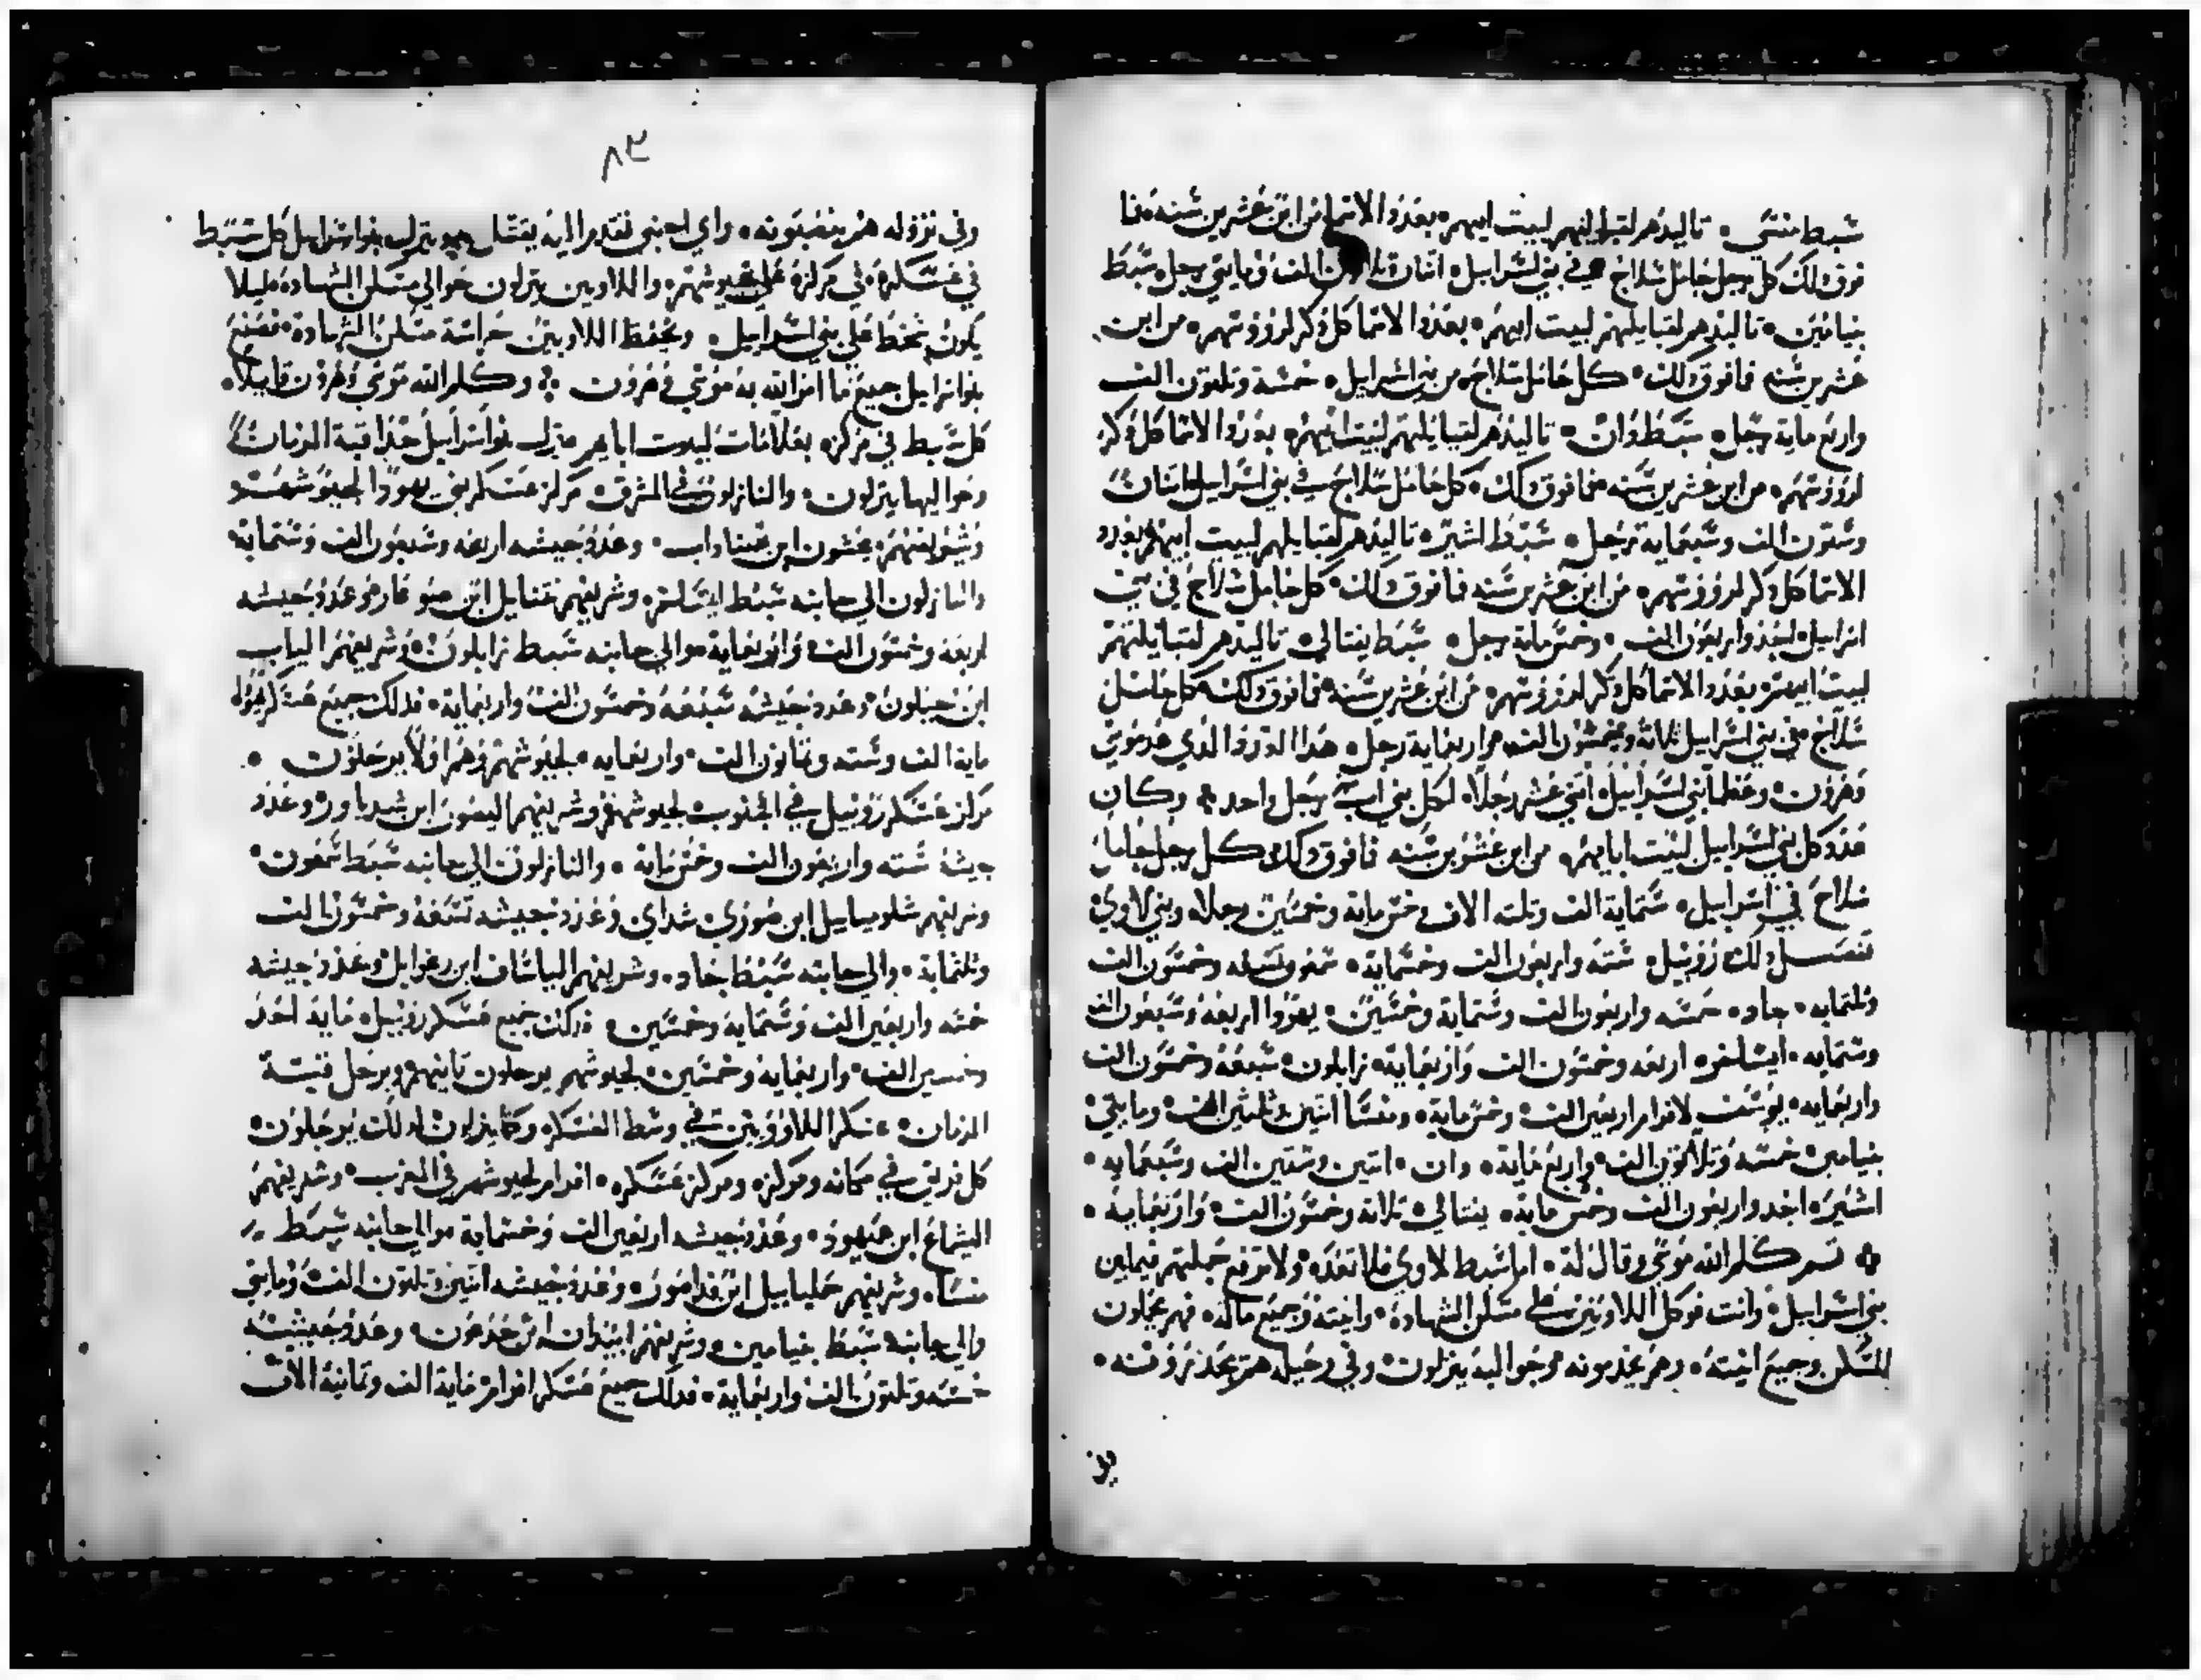 سبط منسي تاليدهم لقبايلهم لبيت ابيهم بعدد الاسما من ابن عشرين سنه فا
فوق دلك كل رجل حامل سلاح في بني اسراييل اتنان وتلاتون الف ومايتي رجل سبط
بنيامين تاليدهم لقبايلهم لبيت ابيهم بعدد الاسما كل دكر لرووسهم من ابن
عشرين سنه فا فوق دلك كل حامل سلاح من بني اسراييل خمسة وتلتون الف
واربع ماية رجل سبط دان تاليدهم لقبايلهم لبيت ابيهم بعدد الاسما كل دكر
لرووسهم من ابن عشرين سنه فما فوق دلك كل حامل سلاح في بني اسراييل اتنان
وستون الف وسبعماية رجل سبط اشير تاليدهم لقبايلهم لبيت ابيهم بعدد
الاسما كل دكر لرووسهم من ابن عشرين سنه فا فوق دلك كل حامل سلاح في بني
اسراييل احد واربعون الف وخمس ماية رجل سبط يفتالي تاليدهم لقبايلهم
لبيت ابيهم بعدد الاسما كل دكر لرووسهم من ابن عشرين سنه فا فوق دلك كل حامل
سلاح في بني اسراييل تلاتة وخمسون الف واربعماية رجل هدا العدد الدي عد موسي
وهرون وعظما بني اسراييل اتني عشر رجلا لكل بني اب رجل واحد وكان
عدد كل بني اسراييل لبيت ابايهم من ابن عشرين سنه فا فوق دلك كل رجل حامل
سلاح في اسراييل ستماية الف وتلته الاف وخمس ماية وخمسين رجلا وبني لاوي
دلك روبيل سته واربعون الف وخمسماية شمعون تسعه وخمسون الف
وتلتمايه جاد خمسه واربعون الف وستماية وخمسين يهودا اربعه وسبعون الف
وستمايه ايساخر اربعه وخمسون الف واربعماية زابلون سبعه وخمسون الف
واربعمايه يوسف لافرام اربعين الف وخمس ماية ومنسا اتنين وتلتين الف ومايتي
بنيامين خمسه وتلاتون الف واربع ماية دان اتنين وستين الف وسبعمايه
اشير احد واربعون الف وخمس ماية يفتالي تلاتة وخمسون الف واربعمايه
تم كلم الله موسي وقال له اما سبط لاوي فلا تعده ولا ترفع جملتهم فيما بين
بني اسراييل وانت فوكل اللاويين مسكن الشهادة وانيته وجميع ماله فهم يحملون
المسكن وجميع انيته وهم يخدمونه وحواليه ينزلون وفي رحيله هم
وفي
٨٢
وفي نزوله هم ينصبونه واي اجنبي تقدم اليه يقتل وينزل بنو اسراييل كل سبط
في عسكره في مركزه علي جيوشهم واللاويين ينزلون حوالي مسكن الشهادة ليلا
يكون سخط علي بني اسراييل ويحفظ اللاويين حراسة مسكن الشهادة فصنع
بنوا اسراييل جميع ما امر الله به موسي وهرون وكلم الله موسي وهرون قايلا
كل سبط في مركزه بعلامات لبيوت اباهم ينزل بنو اسراييل حدا قبة الزمان
وحواليها ينزلون والنازلون في المشرق مركز عسكر بني يهودا لجيوشهم
وشريفهم نحشون ابن عميناداب وعدد جيشه اربعه وسبعون الف وستماية
والنازلون الي جانبه سبط ايساخر وشريفهم نتنايل ابن صوغار وعدد جيشه
اربعة وخمسون الف واربعماية والي جانبه سبط زابلون وشريفهم الياب
ابن حيلون وعدد جيشه سبعه وخمسون الف واربعماية فدلك جميع عسكر يهودا
ماية الف وسته وتمانون الف واربعمايه لجيوشهم وهم اولا يرحلون
مركز عسكر روبيل في الجنوب لجيوشهم وشريفهم اليصور ابن شدياور وعدد
جيشه سته واربعون الف وخمس ماية والنازلون الي جانبه سبط شمعون
وشريفهم شلومياييل ابن صوري شداي وعدد جيشه تسعة وخمسون الف
وتلتماية والي جانبه سبط جاد وشريفهم الياساف ابن رعوايل وعدد جيشه
خمسه واربعين الف وستماية وخمسين فدلك جميع عسكر روبيل ماية احد
وخمسين الف واربعماية وخمسين لجيوشهم يرحلون تانيهم ويرحل قبة
الزمان عسكر اللاويين في وسط العسكر وكما ينزلون كدلك يرحلون
كل فريق في مكانه ومركزه ومركز عسكره افرام لجيوشهم في المغرب وشريفهم
اليشماع ابن عميهود وعدد جيشه اربعين الف وخمسماية والي جانبه سبط
منسا وشريفهم جملياييل ابن فداصور وعدد جيشه اتنين وتلتون الف ومايتي
والي جانبه سبط بنيامين وشريفهم ابيدان ابن جدعون وعدد جيشه
خمسه وتلتون الف واربعماية فدلك جميع عسكر افرام ماية الف وتمانية الاف